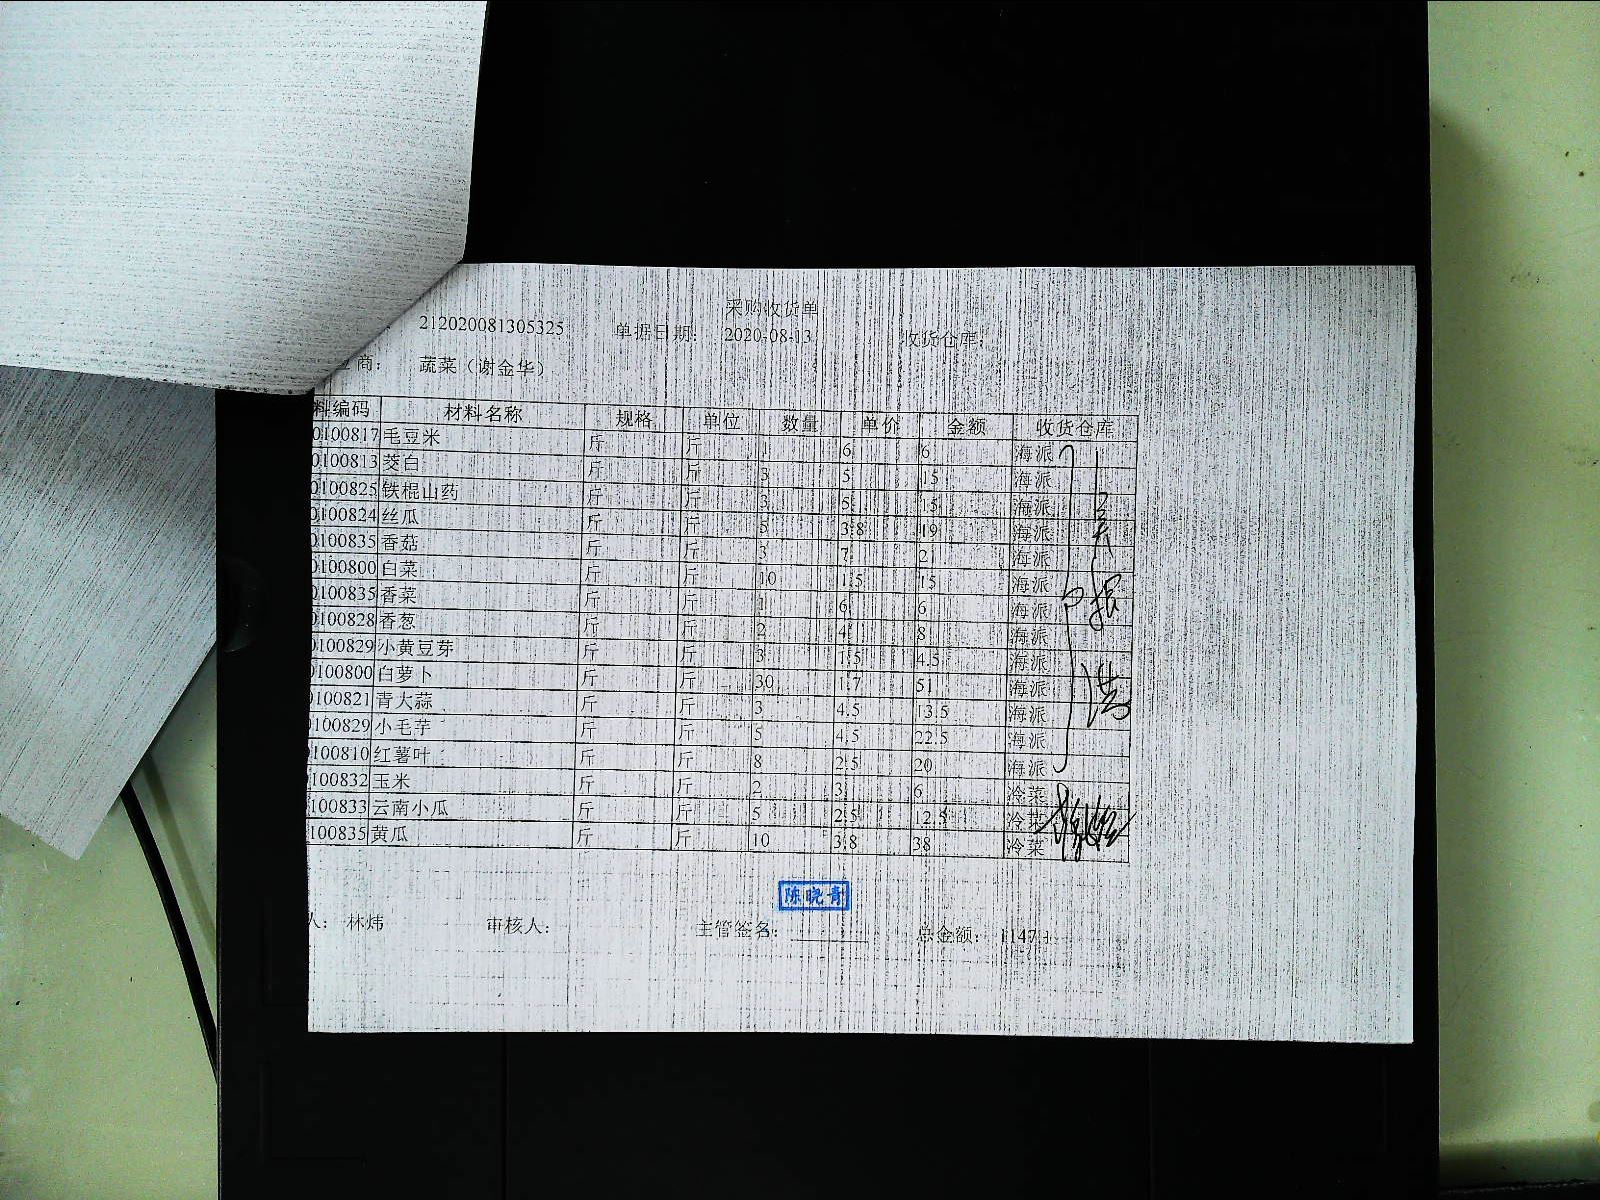 采购收货单
212020081305325 单据日期: 2020-08-13 收货仓库:
商: 蔬菜（谢金华）
料编码 材料名称 规格 单位 数量 单价 金额 收货仓库
0100817 毛豆米 斤 斤 1 6 6 海派
0100813 茭白 斤 斤 3 5 15 海派
0100825 铁棍山药 斤 斤 3 5 15 海派
0100824 丝瓜 斤 斤 5 3.8 19 海派
0100835 香菇 斤 斤 3 7 21 海派
0100800 白菜 斤 斤 10 1.5 15 海派
0100835 香菜 斤 斤 1 6 6 海派
0100828 香葱 斤 斤 2 4 8 海派
0100829 小黄豆芽 斤 斤 3 1.5 4.5 海派
0100800 白萝卜 斤 斤 30 1.7 51 海派
0100821 青大蒜 斤 斤 3 4.5 13.5 海派
0100829 小毛芋 斤 斤 5 4.5 22.5 海派
0100810 红薯叶 斤 斤 8 2.5 20 海派
100832 玉米 斤 斤 2 3 6 冷菜
100833 云南小瓜 斤 斤 5 2.5 12.5 冷菜
100835 黄瓜 斤 斤 10 3.8 38 冷菜
陈晓青
人: 林炜 审核人: 主管签名: 总金额: